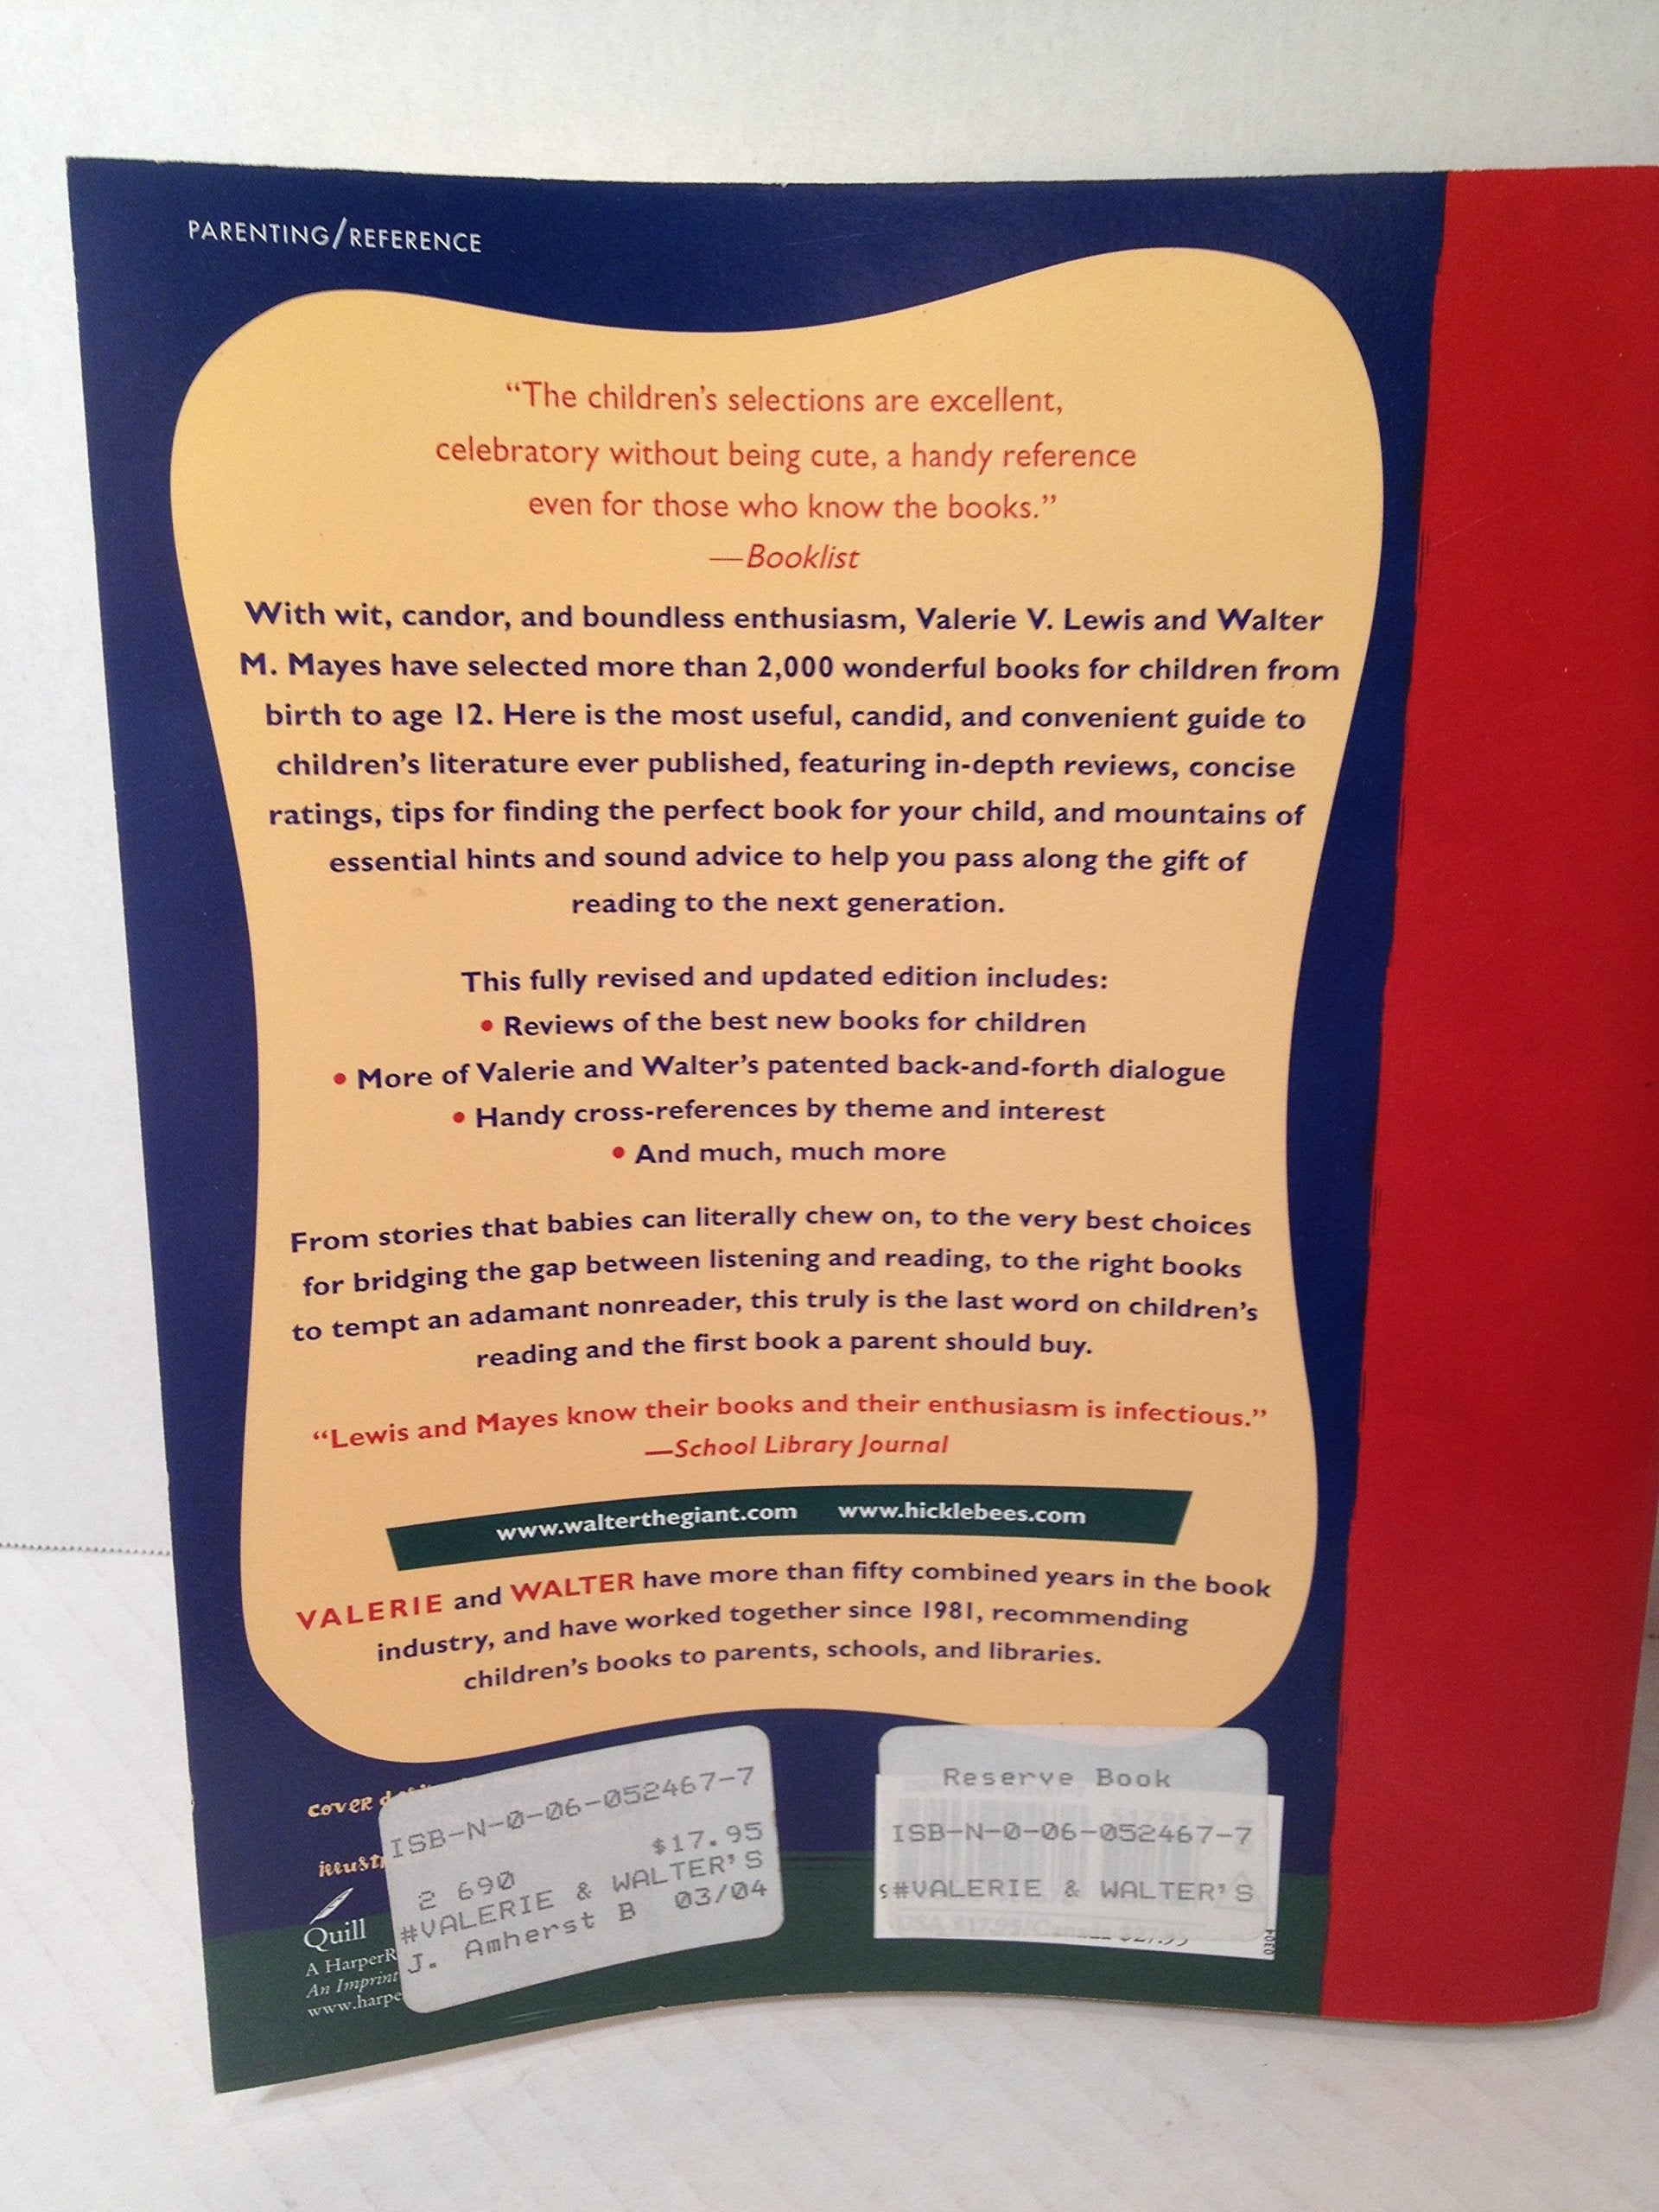 PARENTING/REFERENCE
“The children’s selections are excellent,
celebratory without being cute, a handy reference
even for those who know the books.”
—Booklist
With wit, candor, and boundless enthusiasm, Valerie V. Lewis and Walter
M. Mayes have selected more than 2,000 wonderful books for children from
birth to age 12. Here is the most useful, candid, and convenient guide to
children’s literature ever published, featuring in-depth reviews, concise
ratings, tips for finding the perfect book for your child, and mountains of
essential hints and sound advice to help you pass along the gift of
reading to the next generation.
This fully revised and updated edition includes:
• Reviews of the best new books for children
• More of Valerie and Walter’s patented back-and-forth dialogue
• Handy cross-references by theme and interest
• And much, much more
From stories that babies can literally chew on, to the very best choices
for bridging the gap between listening and reading, to the right books
to tempt an adamant nonreader, this truly is the last word on children’s
reading and the first book a parent should buy.
“Lewis and Mayes know their books and their enthusiasm is infectious.”
—School Library Journal
www.walterthegiant.com www.hicklebees.com
VALERIE and WALTER have more than fifty combined years in the book
industry, and have worked together since 1981, recommending
children’s books to parents, schools, and libraries.
cover
Quill
A HarperR
An Imprint
www.harpe
ISB-N-0-06-052467-7
$17.95
2 690
#VALERIE & WALTER'S
J. Amherst B 03/04
Reserve Book
ISB-N-0-06-052467-7
#VALERIE & WALTER'S
0304